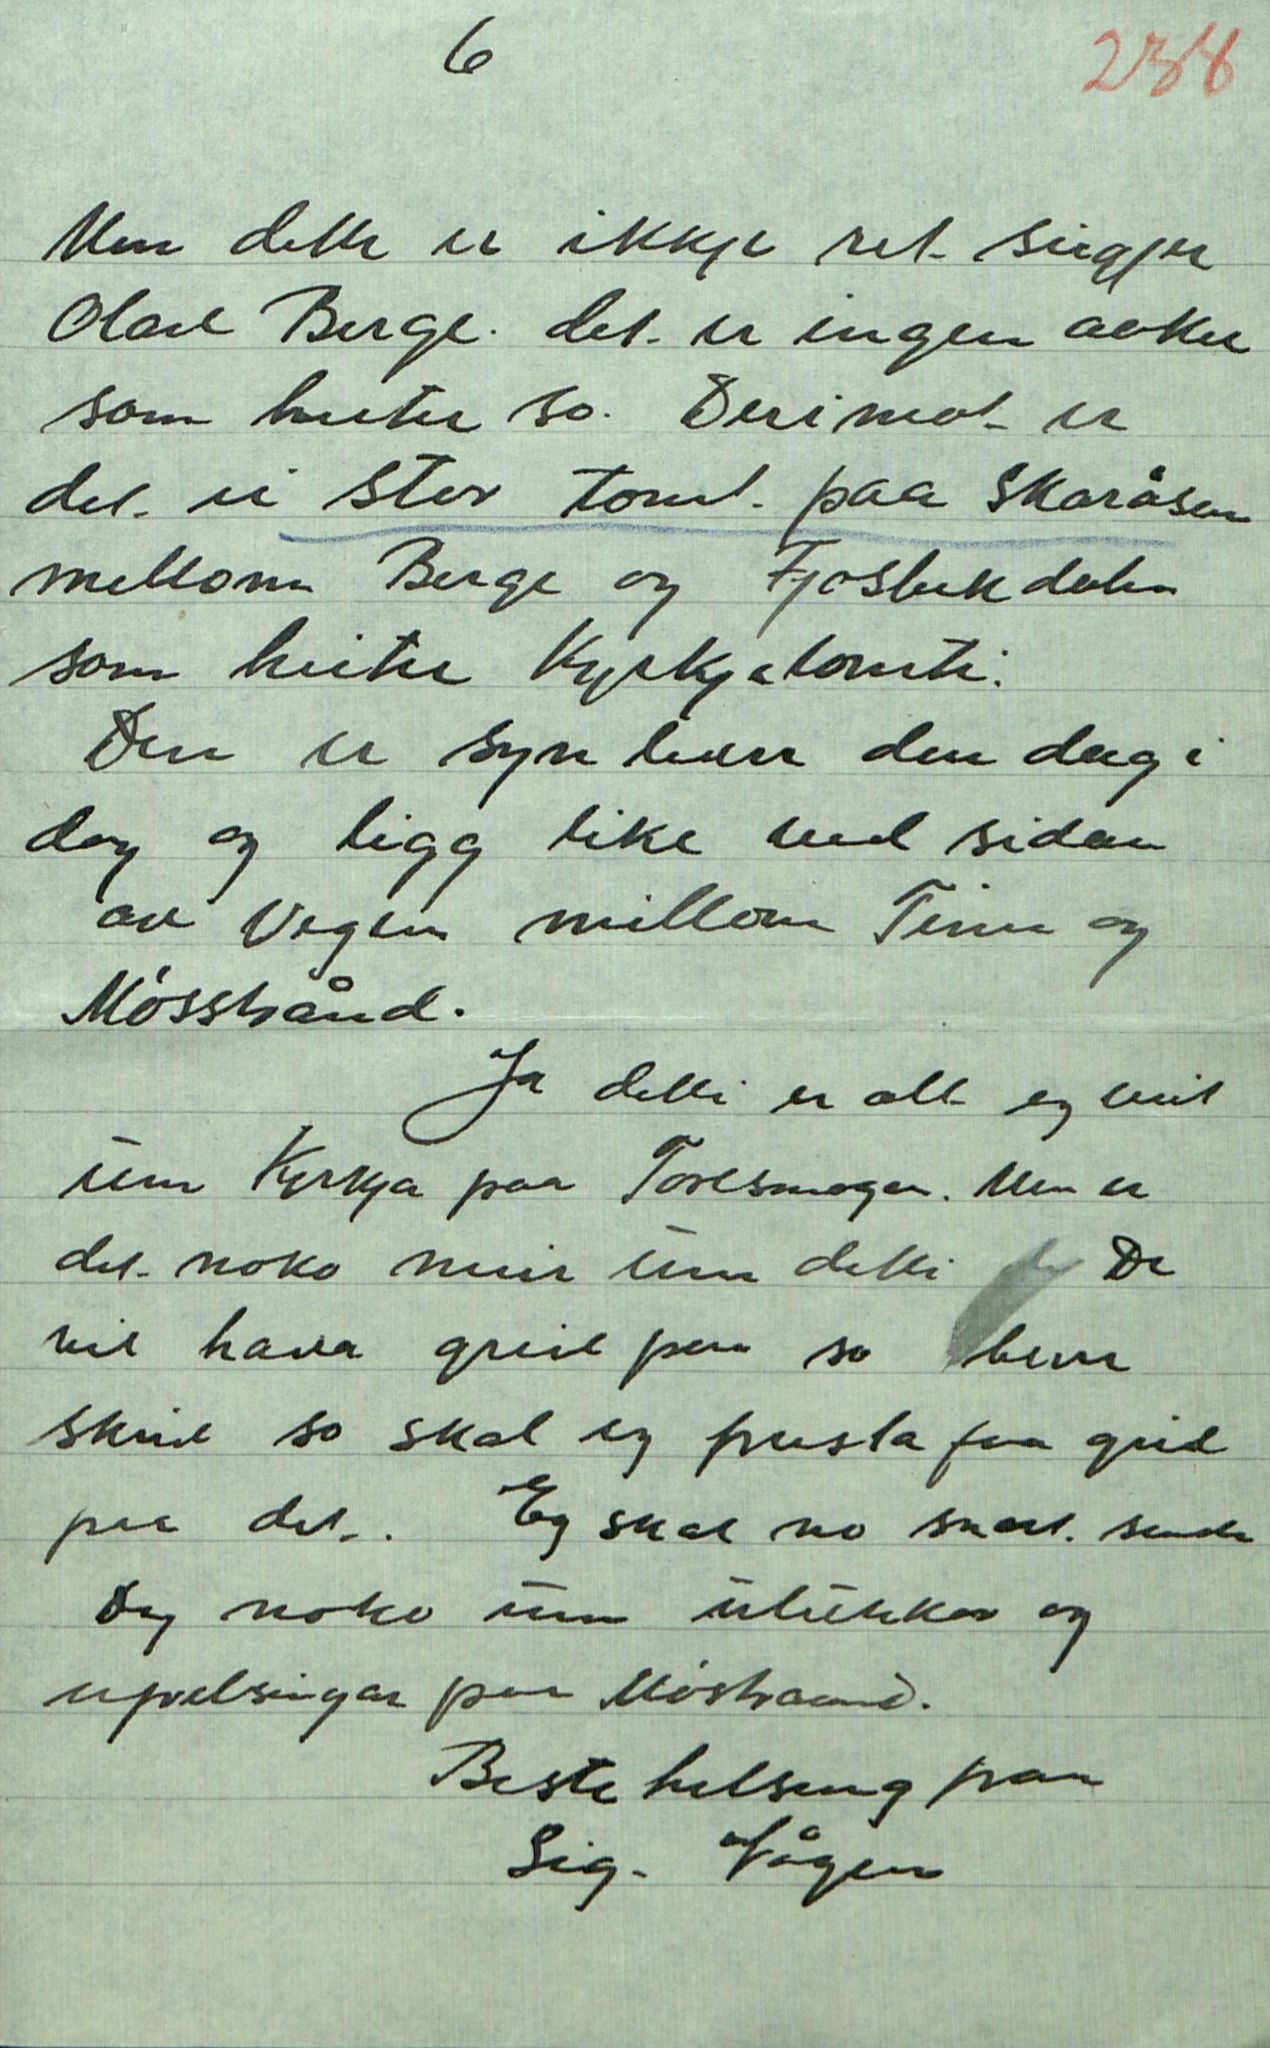 6
238
Men dette er ikkje ret. sieggjer
Olav Berge. det. er ingen aaker
som heiter so. Derimot er
det. ei stor tomt. paa Skaråsen
mellom Berge og Fjosbekdalen
som heiter Kyrkjetomti.
Den er synberr den dag i
dag og ligg like ved sidan
av Vegen millom Tinn og
Mösstrånd.
Ja detti er alt eg veit
üm Kyrkja paa Torlsmogen. Men er
det. noko meir üm detti De
vil hava greid paa so berre
skriv so skal eg freista faa greid
paa det. Eg skal no snart. senda
Dy noko üm ülükkor og
upvelsingar paa Möstraand.
Beste helsing fraa
Sig. Vågen